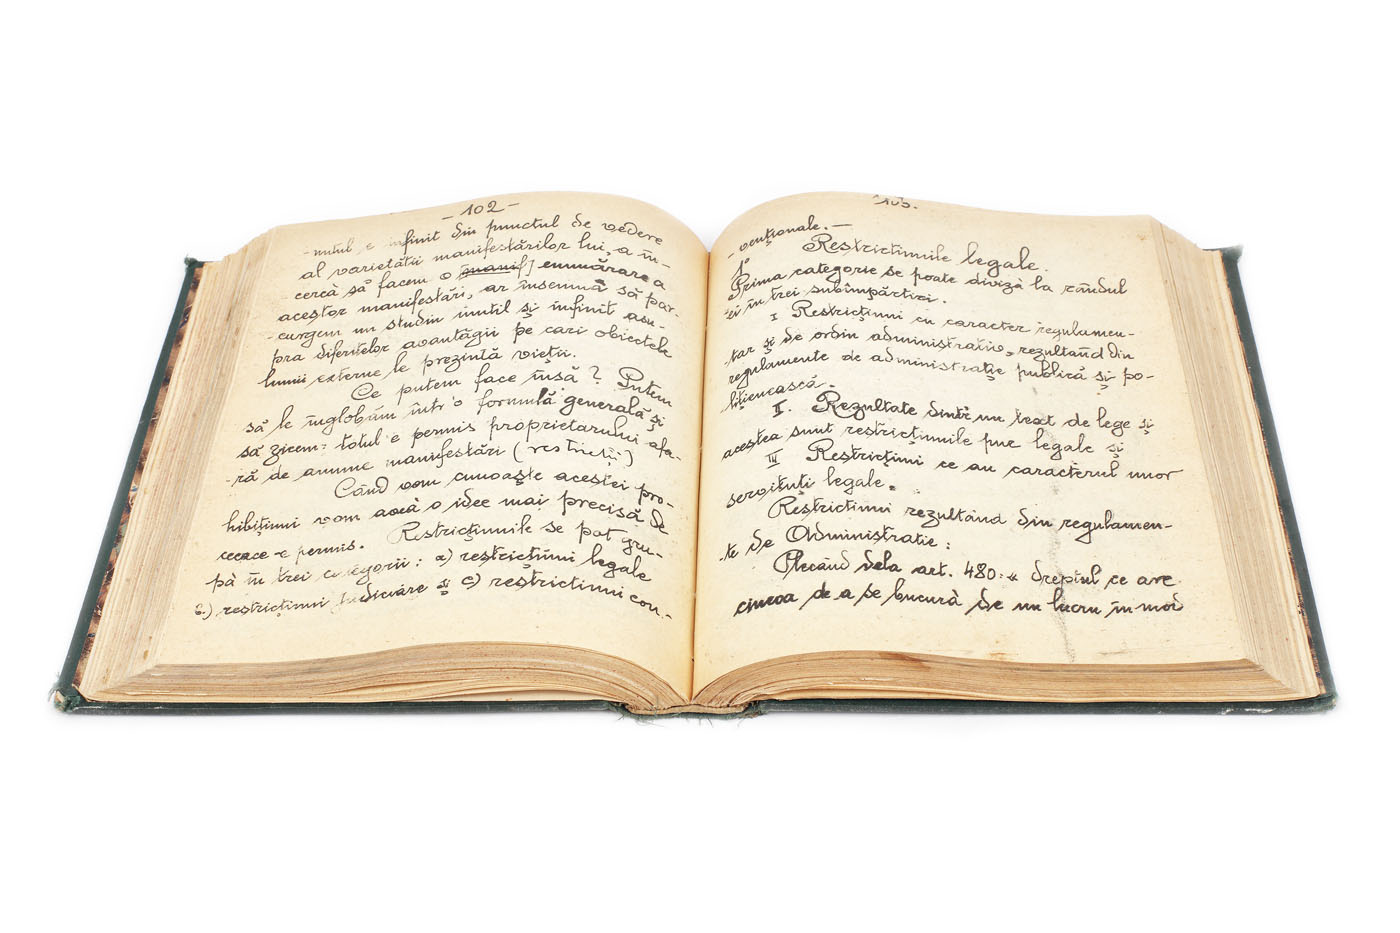 - 102 -
-nutul e infinit din punctul de vedere
al varietății manifestărilor lui, a în-
-cercà să facem o manif] enumărare a
acestor manifestări, ar însemnà să par-
-curgem un studiu inutil și infinit asu-
pra diferitelor avantagii pe cari obiectele
lumii externe le prezintă vieții.
Ce putem face însă? Putem
să le înglobăm într'o formulă generală și
să zicem: totul e permis proprietarului afa-
-ră de anume manifestări (restricții)
Când vom cunoaște acestei pro-
hibițiuni vom aveà o idee mai precisă de
ceeace e permis. Restricțiunile se pot gru-
pà în trei categorii: a) restricțiuni legale
b.) restricțiuni judiciare și c) restricțiuni con-
103.
-venționale. —
Restrictiunile legale.
1º
Prima categorie se poate divizà la rândul
ei în trei subîmpărțiri.
I Restricțiuni cu caracter regulamen-
-tar și de ordin administrativ, rezultând din
regulamente de administrație publică și po-
-lițienească.
II. Rezultate dintr'un text de lege și
acestea sunt restricțiunile pur legale și
III Restricțiuni ce au caracterul unor
servituti legale.
Restrictiuni rezultând din regulamen-
-te de Administratie:
Plecând dela art. 480: „ dreptul ce are
cineva de a se bucurà de un lucru în mod